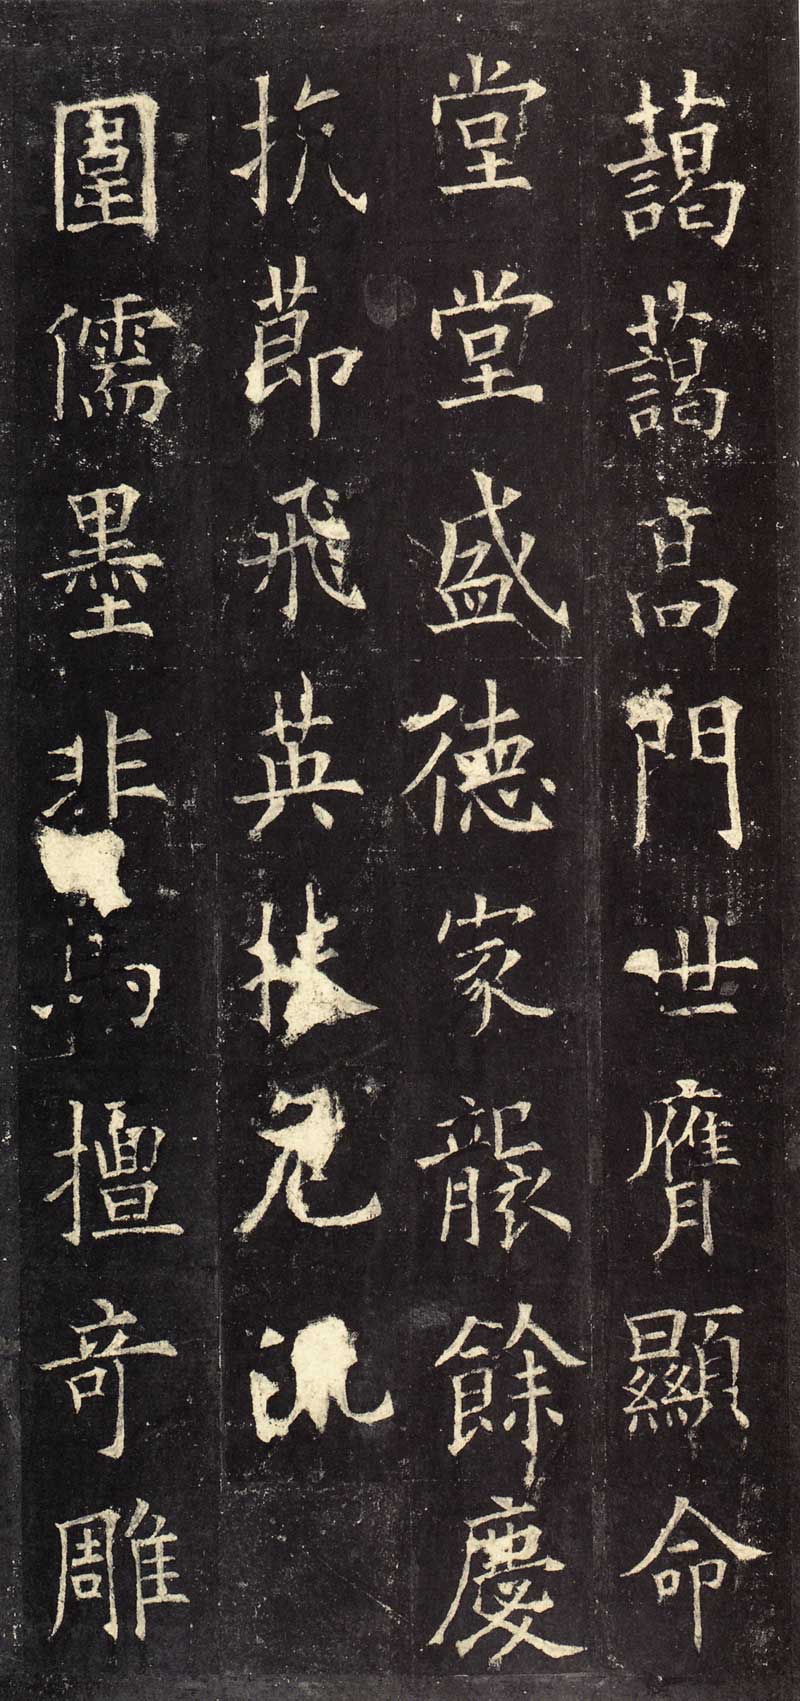 藹藹高門世膺顯命
堂堂盛德家襲餘慶
抗節飛英
圍儒墨非馬擅奇雕